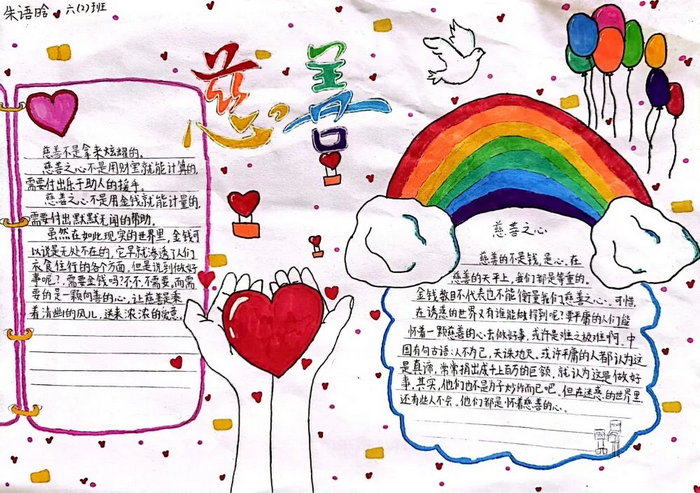 朱语晗 六(2)班
慈善
慈善不是拿来炫耀的,
慈善之心不是用财宝就能计算的,
需要付出乐于助人的援手。
慈善之心不是用金钱就能计量的,
需要付出默默无闻的帮助。
虽然在如此现实的世界里,金钱可
以说是无处不在的,它早就渗透了人们
衣食住行的各个方面,但是说到做好
事呢?需要金钱吗?不,不需要,而需
要的是一颗向善的心,让慈善乘
着清幽的风儿,送来浓浓的
慈善之心
慈善的不是钱,是心,在
慈善的天平上,每们都是等重的。
金钱数目不代表也不能衡量我们慈善之心。可惜
在诱惑的世界又有谁能做得到呢?要平庸的人们能
怀着一颗慈善的心去做好事,或许是难之极难啊,中
国有句古语:人不为己,天诛地灭,或许平庸的人都认为这
是真谛,常常捐出成千上百万的巨额,就认为这是做好
事,其实,他们也不是为了炒作而已吧。但在迷惑的世界里
还有些人不会,他们都是怀着慈善的心。